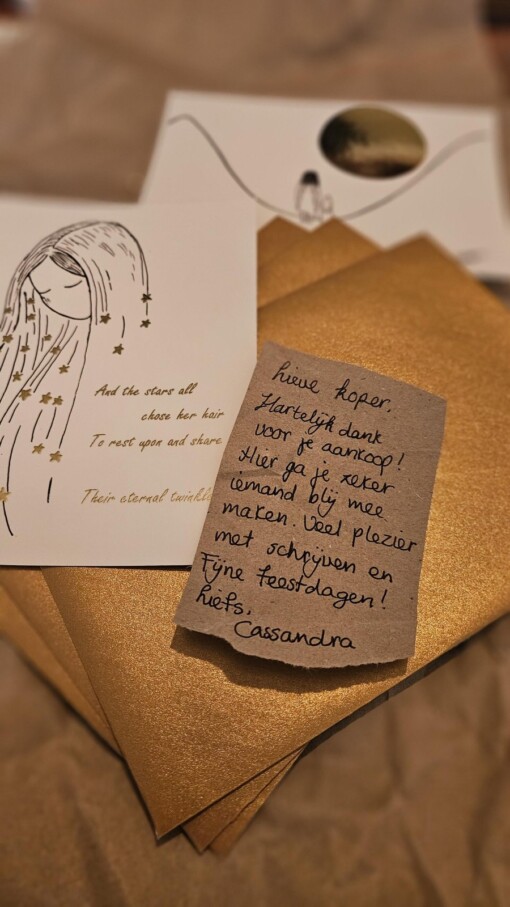 And the stars all
chose her hair
To rest upon and share
Their eternal twinkle
Lieve koper,
Hartelijk dank
voor je aankoop!
Hier ga je zeker
iemand blij mee
maken. Veel plezier
met schrijven en
Fijne feestdagen!
Liefs,
Cassandra